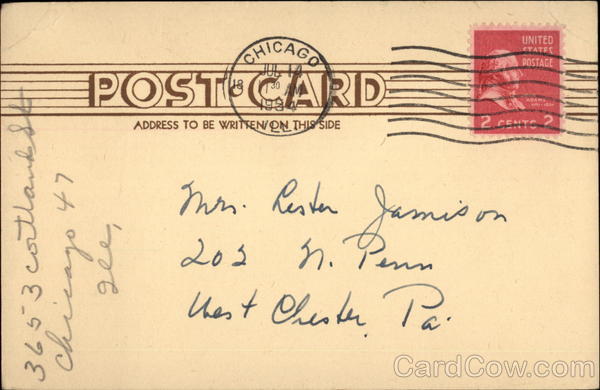 CHICAGO
JUL 1
18
30 AM
ILL.
UNITED
STATES
POSTAGE
ADAMS
2 CENTS 2
POST CARD
ADDRESS TO BE WRITTEN ON THIS SIDE
Mrs. Lester Jamison
202 N. Penn
West Chester, Pa.
3653 Cortland St
Chicago 47
Ill,
CardCow.com